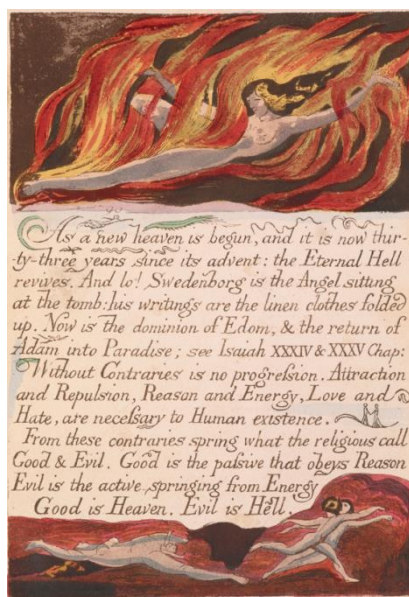 As a new heaven is begun, and it is now thir-
ty-three years since its advent: the Eternal Hell
revives. And lo! Swedenborg is the Angel sitting
at the tomb: his writings are the linen clothes folded
up. Now is the dominion of Edom, & the return of
Adam into Paradise; see Isaiah XXXIV & XXXV Chap:
Without Contraries is no progreſsion. Attraction
and Repulsion, Reason and Energy, Love and
Hate, are neceſsary to Human existence.
From these contraries spring what the religious call
Good & Evil. Good is the paſsive that obeys Reason
Evil is the active springing from Energy
Good is Heaven. Evil is Hell.